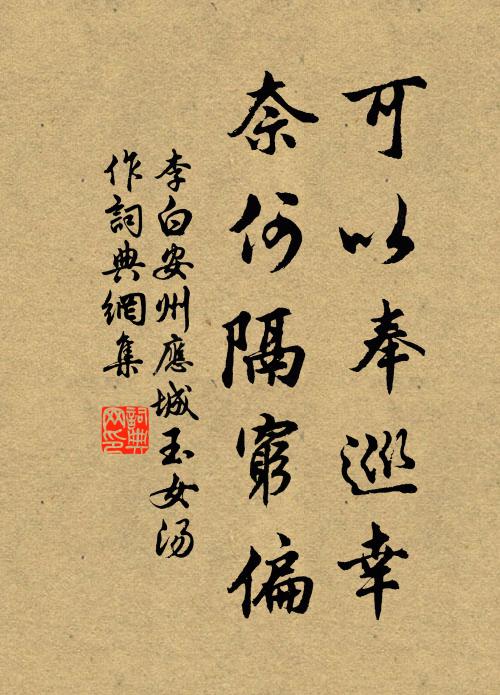 可以奉巡幸
奈何隔窮偏
李白安州應城玉女汤
作詞典網集
詞典网印